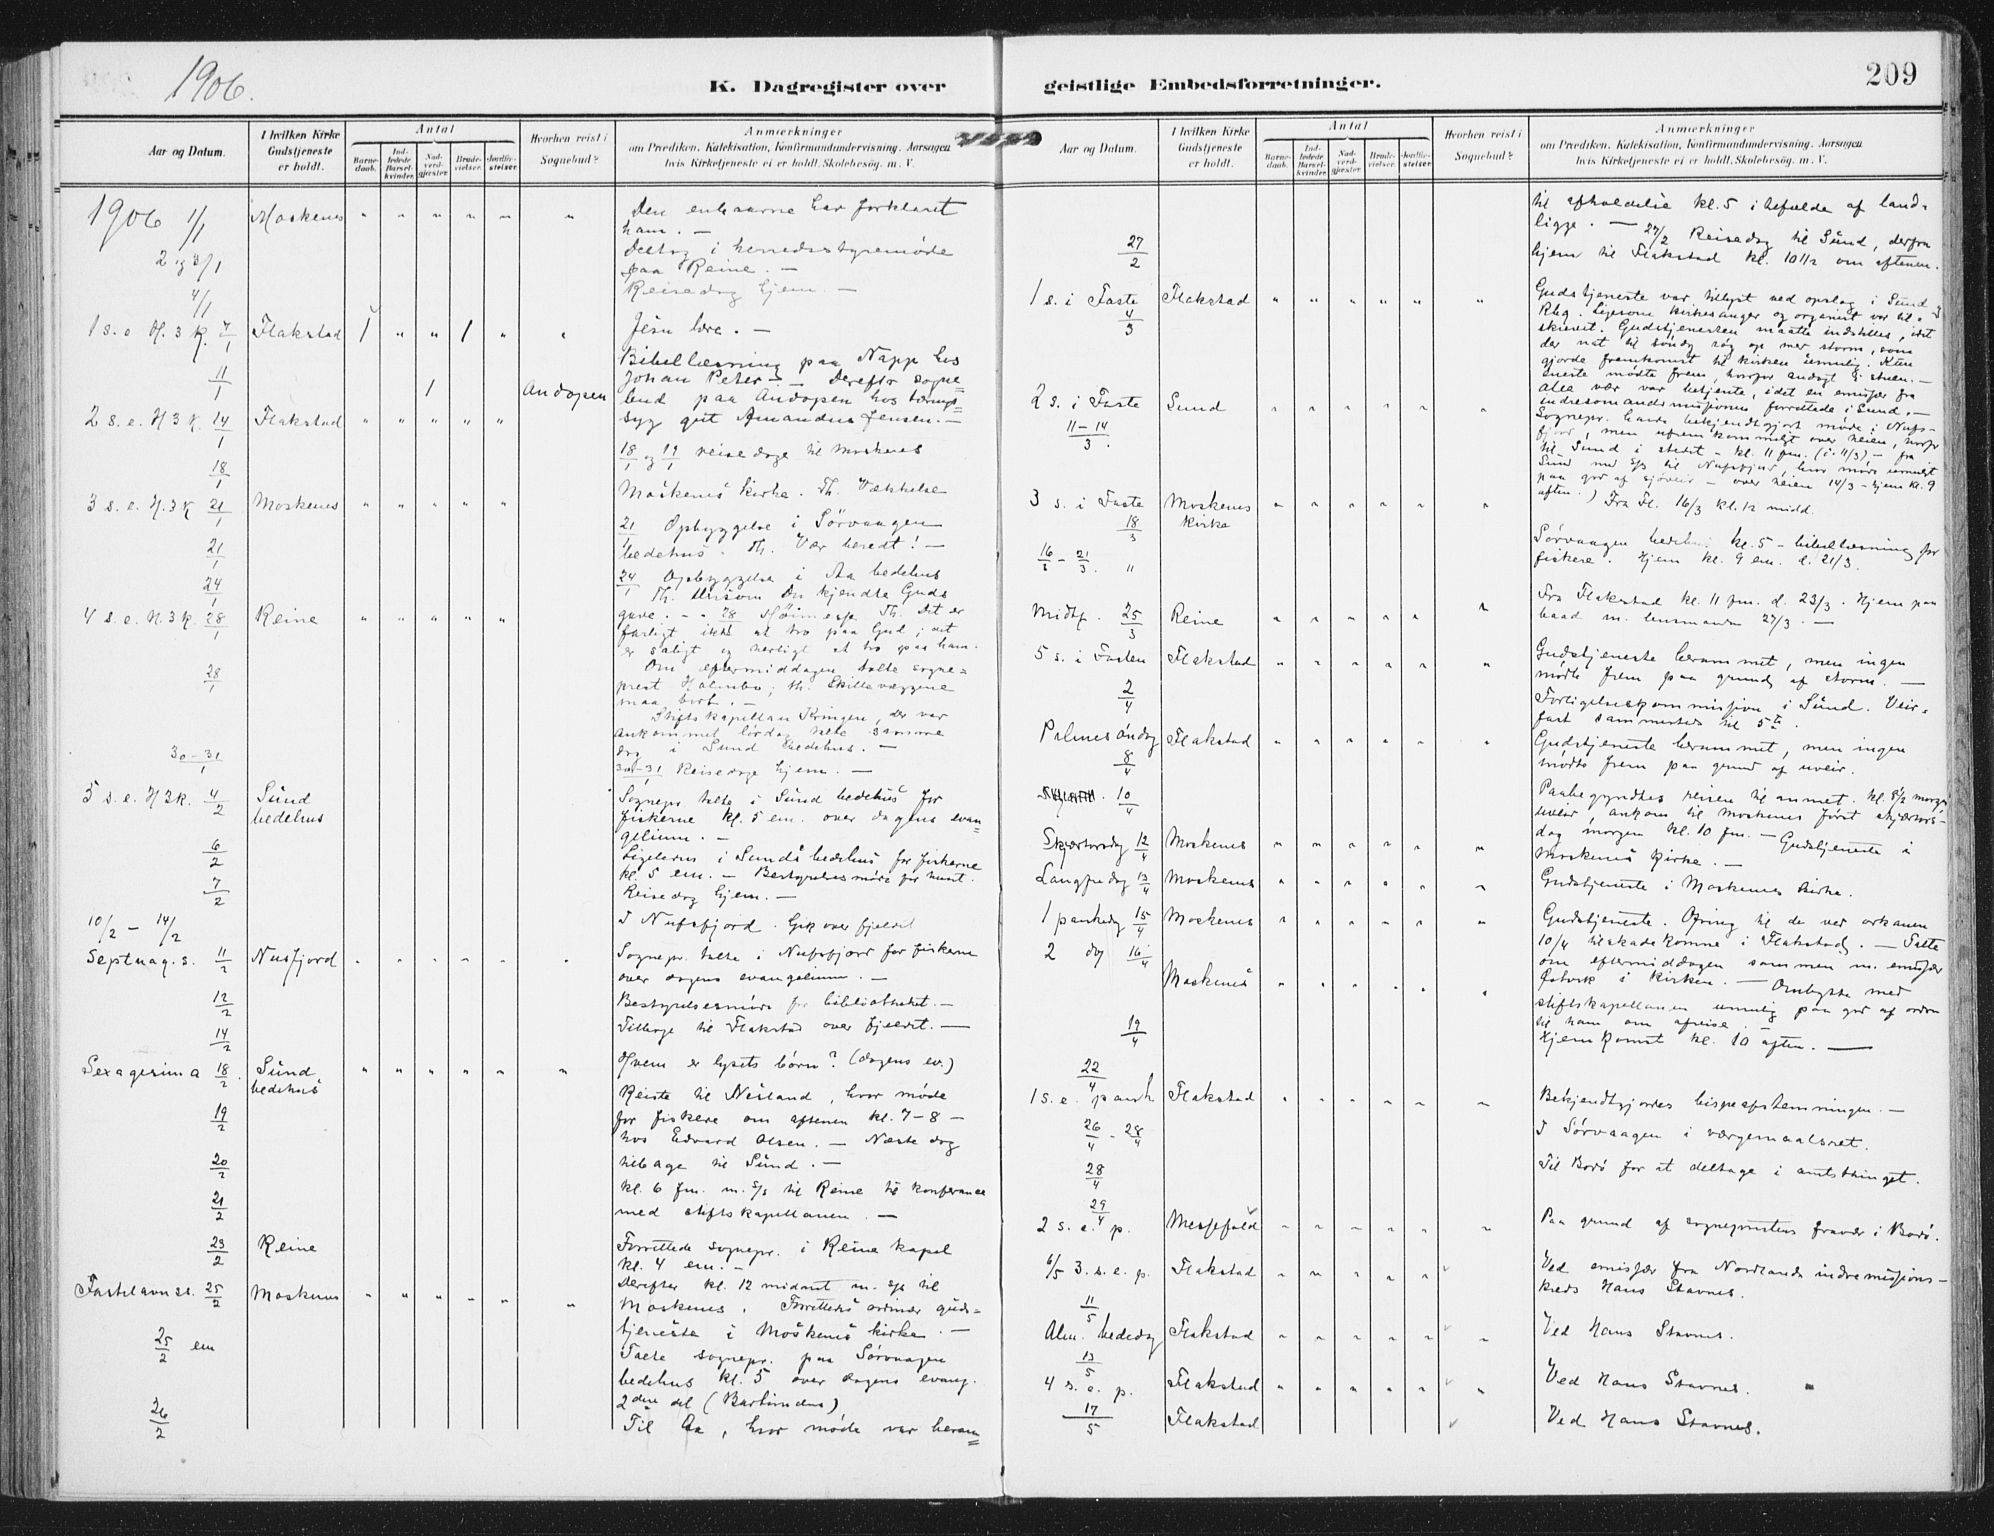 1906.
K. Dagregister over
Aar og Datum.
I hvilken Kirke Gudstjeneste er holdt.
Antal
Barne-daab.
Ind-ledede Barsel-kvinder.
Nad-verd-gjester.
Brude-vielser.
Jordfæ-stelser.
Hvorhen reist i Sognebud?
Anmærkninger
om Prædiken, Katekisation, Konfirmandundervisning, Aarsagen
hvis Kirketjeneste ei er holdt, Skolebesøg, m. V.
1906 1/1 Moskenes " " " " " " Den enbaarne har forklaret
ham. —
2 og 3/1 Deltog i herredsstyremøde
paa Reine. —
4/1 Reisedag hjem. —
1 s. e. H. 3 k. 7/1 Flakstad 1 " " 1 " " Jesu lære. —
Bibellæsning paa Napp hos
11/1 1 Andopen Johan Peter. — Derefter sogne=
bud paa Andopen hos tærings=
2 s. e. H 3 k. 14/1 Flakstad " " " " " syg gut Amandus Jensen. —
18/1 18/1 og 19/1 reisedage til Moskenes
3 s. e. H. 3 k 21/1 Moskenes " " " " " Moskenes kirke. Th. Vækkelse
21/1 21/1 Opbyggelse i Sørvaagen
bedehus. Th. Vær beredt! —
24/1 24/1 Opbyggelse i Aa bedehus
Th. Dersom Du kjendte Guds
4 s. e. H. 3 k. 28/1 Reine " " " " " gave. — 28 Høimesse Th. Det er
farligt ikke at tro paa Gud; det
er saligt og herligt at tro paa ham.
28/1 Om eftermiddagen talte sogne=
prest Holmbo; th. Skillevæggene
maa bort. —
Stiftskapellan Kringen, der var
ankommet lørdag talte samme
dag i Sund bedehus. —
30–31/1 30–31/1 Reisedage hjem. —
5 s. e. H 3 k. 4/2 Sund bedehus Sognepr. talte i Sund bedehus for
fiskerne kl. 5 em. over dagens evan=
gelium. —
6/2 Ligeledes i Sunds bedehus for fiskerne
kl. 5 em. — Bestyrelsesmøde for
7/2 Reisedag hjem. —
10/2 – 14/2 I Nufsfjord. Gik over fjeldet
Septuag. s. 11/2 Nusfjord " " " " " " Sognepr. talte i Nufsfjord for fiskerne
over dagens evangelium. —
12/2 Bestyrelsesmøde for bibliotheket. —
14/2 Tilbage til Flakstad over fjeldet. —
Sexagesima 18/2. Sund bedehus " " " " " " Hvem er lysets børn? (dagens ev.)
19/2 Reiste til Nesland, hvor møde
for fiskere om aftenen kl. 7–8 —
hos Edvard Olsen. — Næste dag
20/2 tilbage til Sund. —
21/2 kl. 6 fm. m. s/s til Reine til konferance
med stiftskapellanen. —
23/2 Reine Forrettede sognepr. i Reine kapel
kl. 4 em. —
Fastelavns s. 25/2 Moskenes " " " " " " Derefter kl. 12 midnat m. s/s til
Moskenes. Forrettedes ordinær guds=
tjeneste i Moskenes kirke. —
25/2 em Talte sognepr. paa Sørvaagen
bedehus kl. 5 over dagens evang.
2den del (Bartimæus)
26/2 Til Aa, hvor møde var beram=
geistlige Embedsforretninger.
209
Aar og Datum.
I hvilken Kirke Gudstjeneste er holdt.
Antal
Barne-daab.
Ind-ledede Barsel-kvinder.
Nad-verd-gjester.
Brude-vielser.
Jordfæ-stelser.
Hvorhen reist i Sognebud?
Anmærkninger
om Prædiken, Katekisation, Konfirmandundervisning, Aarsagen
hvis Kirketjeneste ei er holdt, Skolebesøg, m. V.
til afholdelse kl. 5 i tilfælde af land=
27/2 ligge. — 27/2 Reisedag til Sund, derfra
hjem til Flakstad kl. 10 1/2 om aftenen.
1 s. i Faste 4/3 Flakstad " " " " " " Gudstjeneste var tillyst ved opslag i Sund
Rbg. Ligesom kirkesanger og organist var til=
skrevet. Gudstjenesten maatte indstilles, idet
der nat til søndag røg op mer storm, som
gjorde fremkomst til kirken umulig. Kun
eneste mødte frem, hvorfor andagt i stuen. —
2 s. i Faste Sund " " " " " " Alle vær var betjente, idet en emissær fra
indresømandsmissionen forrettede i Sund. —
11–14/3. Sognepr. havde bekjendtgjort møde i Nufs=
fjord, men ufremkommeligt over heien, hvorfor
til Sund i stedet – kl. 11 fm. (i. 11/3) – fra
Sund med s/s til Nufsfjord, hvor møde umuligt
paa grd af sjøveir – over heien 14/3 – hjem kl. 9
3 s. i Faste 18/3 Moskenes kirke " " " " " " aften.) Fra Fl. 16/3 kl. 12 midd.
16/3 – 21/3. " Sørvaagen bedehus kl. 5 – bibellæsning for
fiskere. Hjem kl. 9 em. d. 21/3.
Midtf. 25/3 Reine " " " " " " Fra Flakstad kl. 11 fm. d. 23/3. Hjem paa
baad m. lensmanden 27/3. —
5 s. i Fasten 2/4 Flakstad " " " " " " Gudstjeneste berammet, men ingen
mødte frem paa grund af storm. —
Forligelseskommission i Sund. Veir=
fast sammesteds til 5te.
Palmesøndag 8/4 Flakstad " " " " " " Gudstjeneste berammet, men ingen
mødte frem paa grund af uveir.
10/4 Paabegyndtes reisen til annex. kl. 8 1/2 morgen
uveir, ankom til Moskenes først skjærtors=
Skjærtorsdag 12/4 Moskenes " " " " " " dag morgen kl. 10 fm. — Gudstjeneste i
Moskenes kirke. —
Langfredag 13/4 Moskenes " " " " " " Gudstjeneste i Moskenes kirke.
1 paaskedag 15/4 Moskenes " " " " " " Gudstjeneste. Ofring til de ved orkanen
2 dag 16/4 Moskenes " " " " " " 10/4 tilskadekomne i Flakstad. — Talte
om eftermiddagen sammen m. emissær
Østvik i kirken. — Ombytte med
stiftskapellanen umulig paa grd af orden
til ham om afreise. —
19/4 Hjemkomst kl. 10 aften. —
22/4 1 s. e. paask Flakstad " " " " " " Bekjendtgjordes bispeafstemningen. —
26/4 – 28/4 I Sørvaagen i værgemaalsret.
28/4 Til Bodø for at deltage i amtsthinget.
29/4 2 s. e. p. Messefald " " " " " " Paa grund af sogneprestens fravær i Bodø.
6/5 3. s. e. p. Flakstad " " " " " Ved emissær fra Nordlands indremissions=
kreds Hans Stavnes.
11/5 Alm. bededag Flakstad " " " " " " Ved Hans Stavnes.
13/5 4 s. e. p. Flakstad " " " " " " Ved Hans Stavnes.
17/5 Flakstad " " " " " Ved Hans Stavnes.